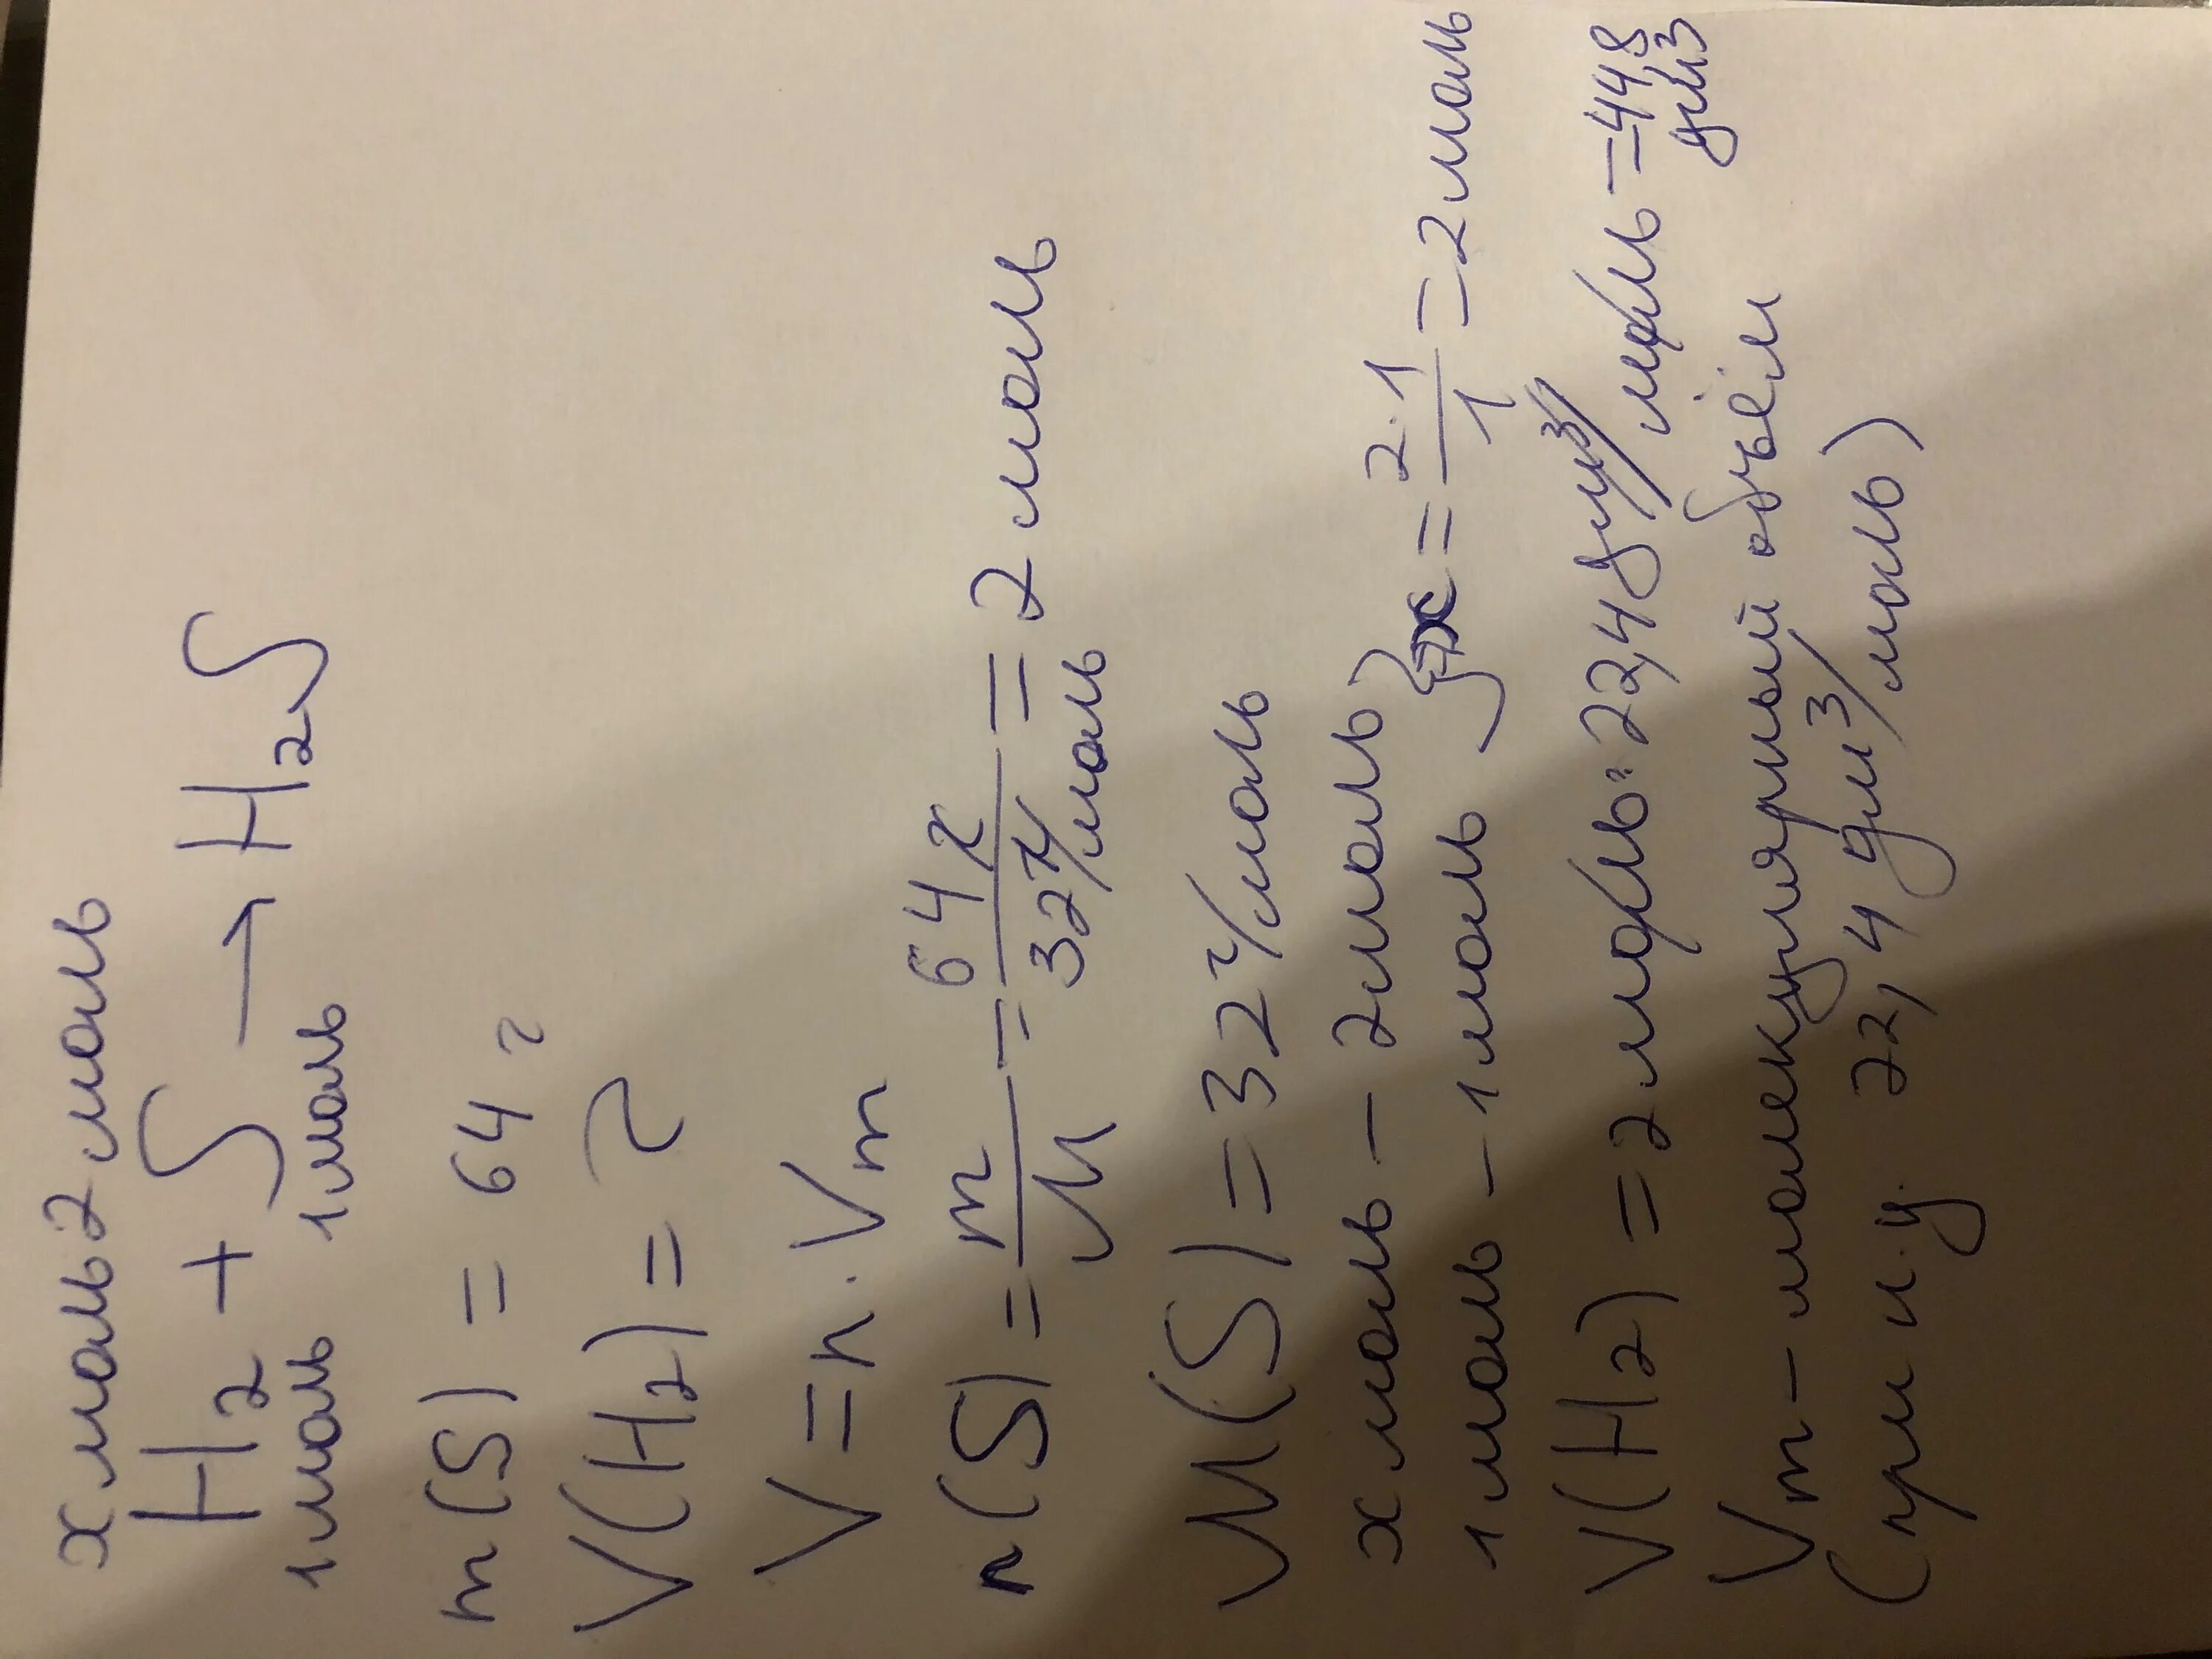 x моль 2 моль
H2 + S → H2S
1 моль 1 моль
m(S) = 64 г
V(H2) = ?
V = n · Vm
n(S) = m/M = 64 г / 32 г/моль = 2 моль
M(S) = 32 г/моль
x моль – 2 моль
1 моль – 1 моль } x = 2·1/1 = 2 моль
V(H2) = 2 моль · 22,4 дм³/моль = 44,8 дм³
Vm – молекулярный объём
(при н.у. 22,4 дм³/моль)